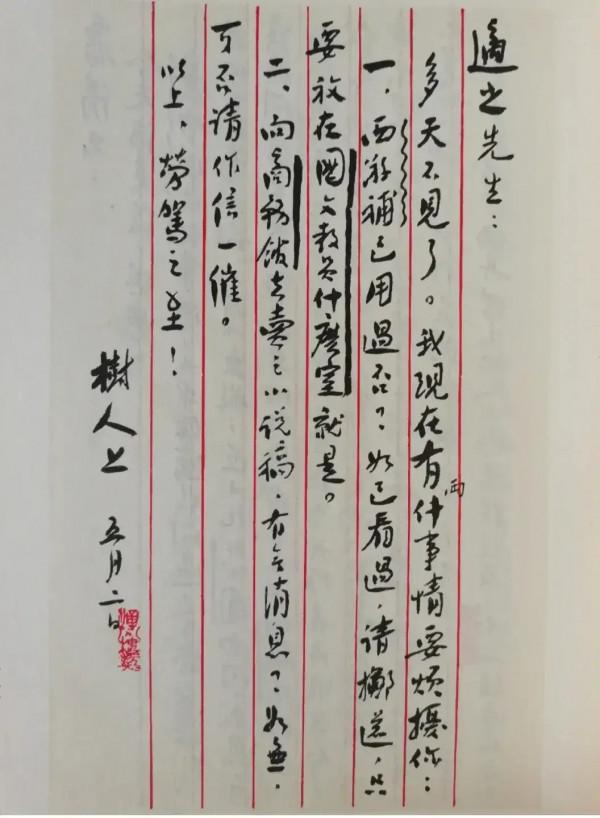 適之先生：
多天不見了。我現在有兩件事情要煩擾你：
一、西游補已用過否？如已看過，請擲還，只
要放在國文教員什麽室就是。
二、向商務館去賣之小説稿，有無消息？如無，
可否請作信一催。
以上，勞駕之至！
樹人上 五月二日